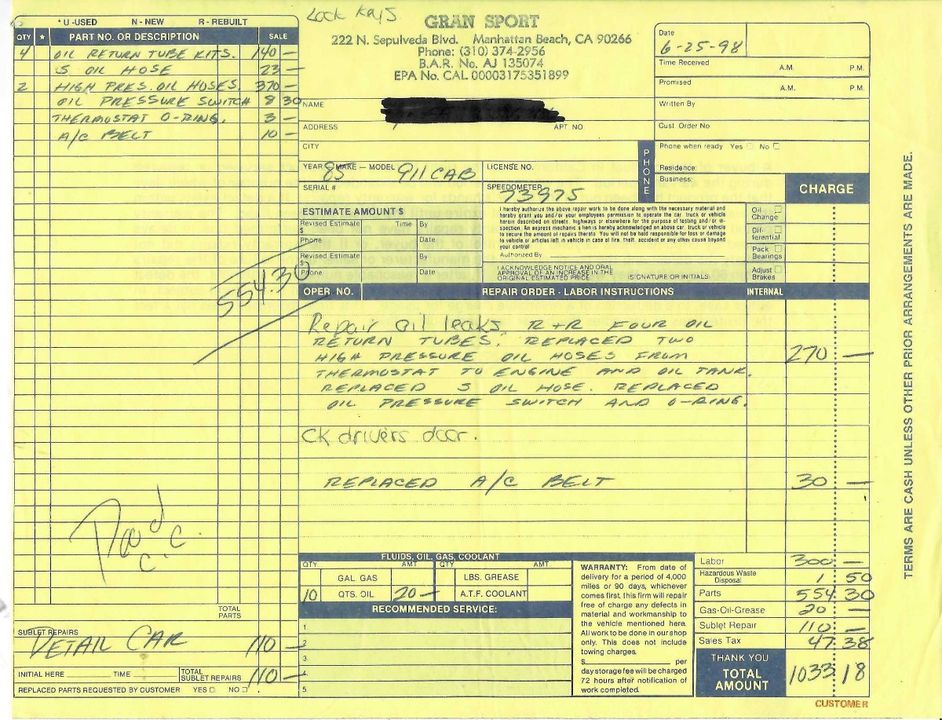 Lock Keys
GRAN SPORT
222 N. Sepulveda Blvd. Manhattan Beach, CA 90266
Phone: (310) 374-2956
B.A.R. No. AJ 135074
EPA No. CAL 00003175351899
* U-USED N - NEW R - REBUILT
QTY * PART NO. OR DESCRIPTION SALE
4 OIL RETURN TUBE KITS. 140 —
S OIL HOSE 23 —
2 HIGH PRES. OIL HOSES 370 —
OIL PRESSURE SWITCH 8 30
THERMOSTAT O-RING. 3 —
A/C BELT 10 —
554.30
Paid C.C.
TOTAL PARTS
SUBLET REPAIRS
DETAIL CAR 110 —
INITIAL HERE TIME TOTAL SUBLET REPAIRS 110 —
REPLACED PARTS REQUESTED BY CUSTOMER YES NO
Date
6-25-98
Time Received A.M. P.M.
Promised A.M. P.M.
Written By
Cust. Order No
Phone when ready Yes No
PHONE
Residence:
Business:
NAME
ADDRESS APT NO
CITY
YEAR - MAKE - MODEL 85 911 CAB LICENSE NO.
SERIAL # SPEEDOMETER 73975
CHARGE
ESTIMATE AMOUNT $
Revised Estimate $ Time By
Phone Date
Revised Estimate $ By
Phone Date
I hereby authorize the above repair work to be done along with the necessary material and
hereby grant you and/or your employees permission to operate the car, truck or vehicle
herein described on streets, highways or elsewhere for the purpose of testing and/or in-
spection. An express mechanic's lien is hereby acknowledged on above car, truck or vehicle
to secure the amount of repairs thereto. You will not be held responsible for loss or damage
to vehicle or articles left in vehicle in case of fire, theft, accident or any other cause beyond
your control
Authorized By
I ACKNOWLEDGE NOTICE AND ORAL
APPROVAL OF AN INCREASE IN THE
ORIGINAL ESTIMATED PRICE. (SIGNATURE OR INITIALS)
Oil Change
Dif-ferential
Pack Bearings
Adjust Brakes
OPER. NO. REPAIR ORDER - LABOR INSTRUCTIONS INTERNAL
Repair oil leaks. R+R FOUR OIL
RETURN TUBES. REPLACED TWO
HIGH PRESSURE OIL HOSES FROM 270 —
THERMOSTAT TO ENGINE AND OIL TANK.
REPLACED S OIL HOSE. REPLACED
OIL PRESSURE SWITCH AND O-RING.
CK drivers door.
REPLACED A/C BELT 30 —
FLUIDS, OIL, GAS, COOLANT
QTY. AMT QTY. AMT
GAL. GAS LBS. GREASE
10 QTS. OIL 20 — A.T.F. COOLANT
RECOMMENDED SERVICE:
1
2.
3.
4.
5.
WARRANTY: From date of
delivery for a period of 4,000
miles or 90 days, whichever
comes first, this firm will repair
free of charge any defects in
material and workmanship to
the vehicle mentioned here.
All work to be done in our shop
only. This does not include
towing charges.
$ per
day storage fee will be charged
72 hours after notification of
work completed.
Labor 300 —
Hazardous Waste Disposal 1 50
Parts 554 30
Gas-Oil-Grease 20 —
Sublet Repair 110 —
Sales Tax 47 38
THANK YOU
TOTAL AMOUNT 1033 18
CUSTOMER
TERMS ARE CASH UNLESS OTHER PRIOR ARRANGEMENTS ARE MADE.